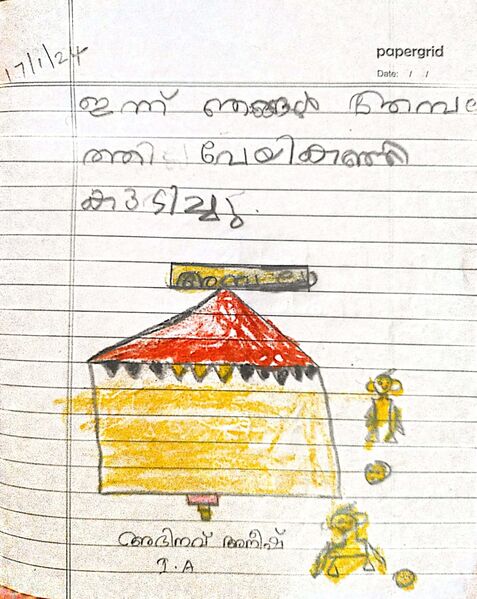 papergrid
17/1/24
Date: / /
ഇന്ന് ഞങ്ങൾ അമ്പല
ത്തി പേയികഞ്ഞി
കുടിച്ചു.
അമ്പലം
അഭിനവ് അനീഷ്
1.A